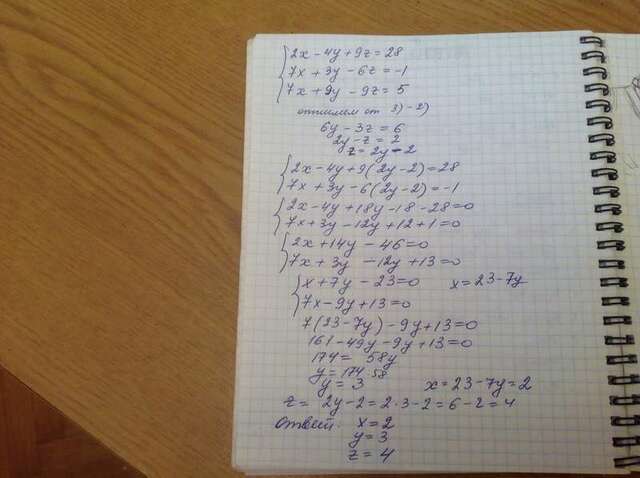 2x - 4y + 9z = 28
7x + 3y - 6z = -1
7x + 9y - 9z = 5
отнимем от 3) - 2)
6y - 3z = 6
2y - z = 2
z = 2y - 2
2x - 4y + 9(2y - 2) = 28
7x + 3y - 6(2y - 2) = -1
2x - 4y + 18y - 18 - 28 = 0
7x + 3y - 12y + 12 + 1 = 0
2x + 14y - 46 = 0
7x + 3y - 12y + 13 = 0
x + 7y - 23 = 0 x = 23 - 7y
7x - 9y + 13 = 0
7(23 - 7y) - 9y + 13 = 0
161 - 49y - 9y + 13 = 0
174 = 58y
y = 174:58
y = 3 x = 23 - 7y = 2
z = 2y - 2 = 2·3 - 2 = 6 - 2 = 4
Ответ: x = 2
y = 3
z = 4